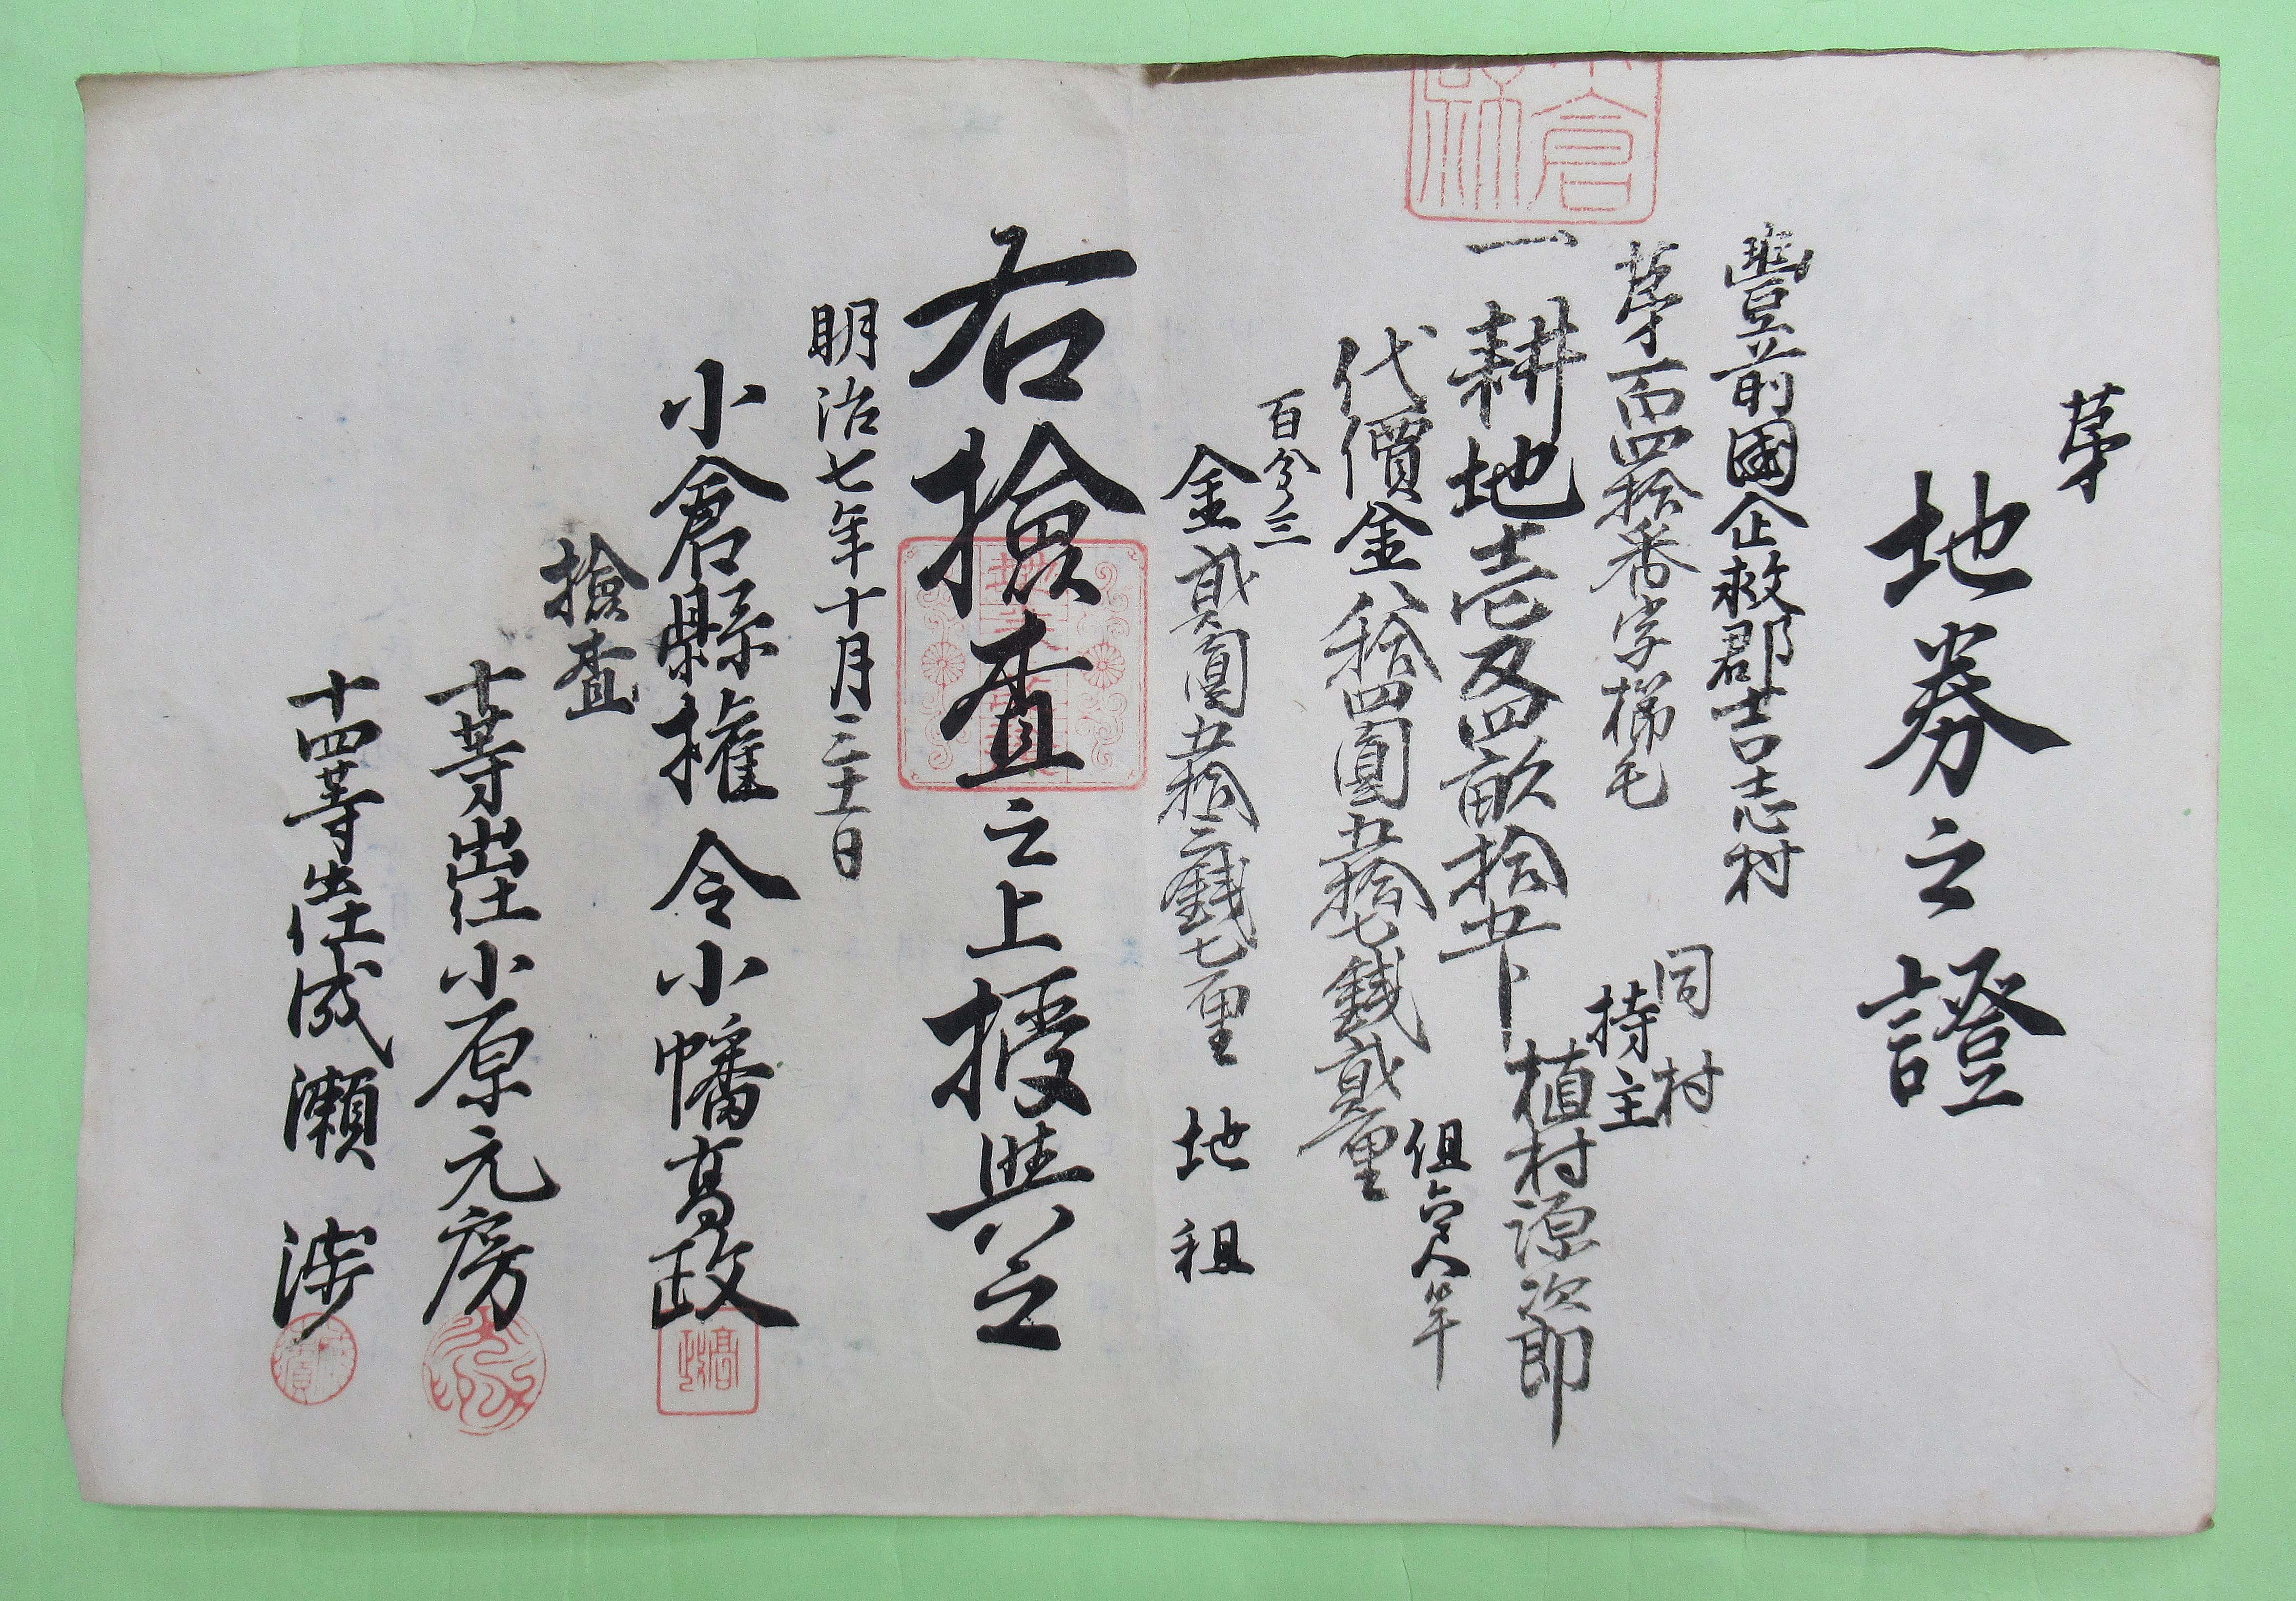 第
地券之證
豐前國企救郡吉志村
第百四拾番字梯毛
同村
持主
植村源次郎
一耕地壱反四畝拾五卜
但六尺竿
代價金八拾四圓五拾七錢貳厘
百分ノ三
金貳圓五拾三錢七厘 地租
右撿査之上授與之
明治七年十月三十一日
小倉縣權令小幡高政
撿査
十等出仕小原元房
十四等出仕成瀬渉
高政